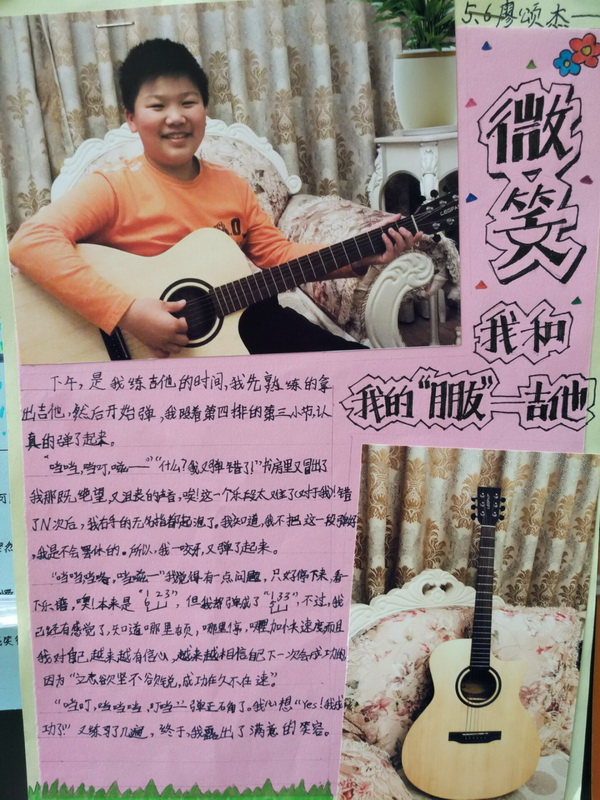 5.6廖颂杰
微笑
我和
我的“朋友”—吉他
下午，是我练吉他的时间，我先熟练的拿
出吉他，然后开始弹，我照着第四排的第三小节，认
真的弹了起来。
“当当，当叮，嗞——”“什么？我又弹错了！”书房里又冒出了
我那既绝望，又沮丧的声音，唉！这一个乐段太难了（对于我）！错
了N次后，我右手的无名指都起泡了。我知道，我不把这一段弹好
，我是不会罢休的。所以，我一咬牙，又弹了起来。
“当当当当，当嗞—”我觉得有一点问题，只好停下来，看
下乐谱，噢！本来是“123”，但我都弹成了“133”不过，我
已经有感觉了，知道哪里有顿，哪里停，哪里加快速度而且
我对自己越来越有信心，越来越相信自己下一次会成功的
因为“立志欲坚不欲锐，成功在久不在速”。
“当叮，当当当，叮当—”弹正确了。我心想“Yes！我成
功了”又练习了几遍，终于，我露出了满意的笑容。